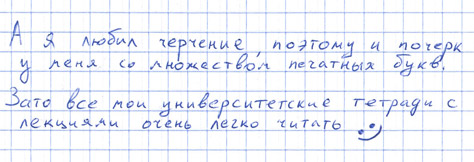 А я любил черчение, поэтому и почерк
у меня со множеством печатных букв.
Зато все мои университетские тетради с
лекциями очень легко читать